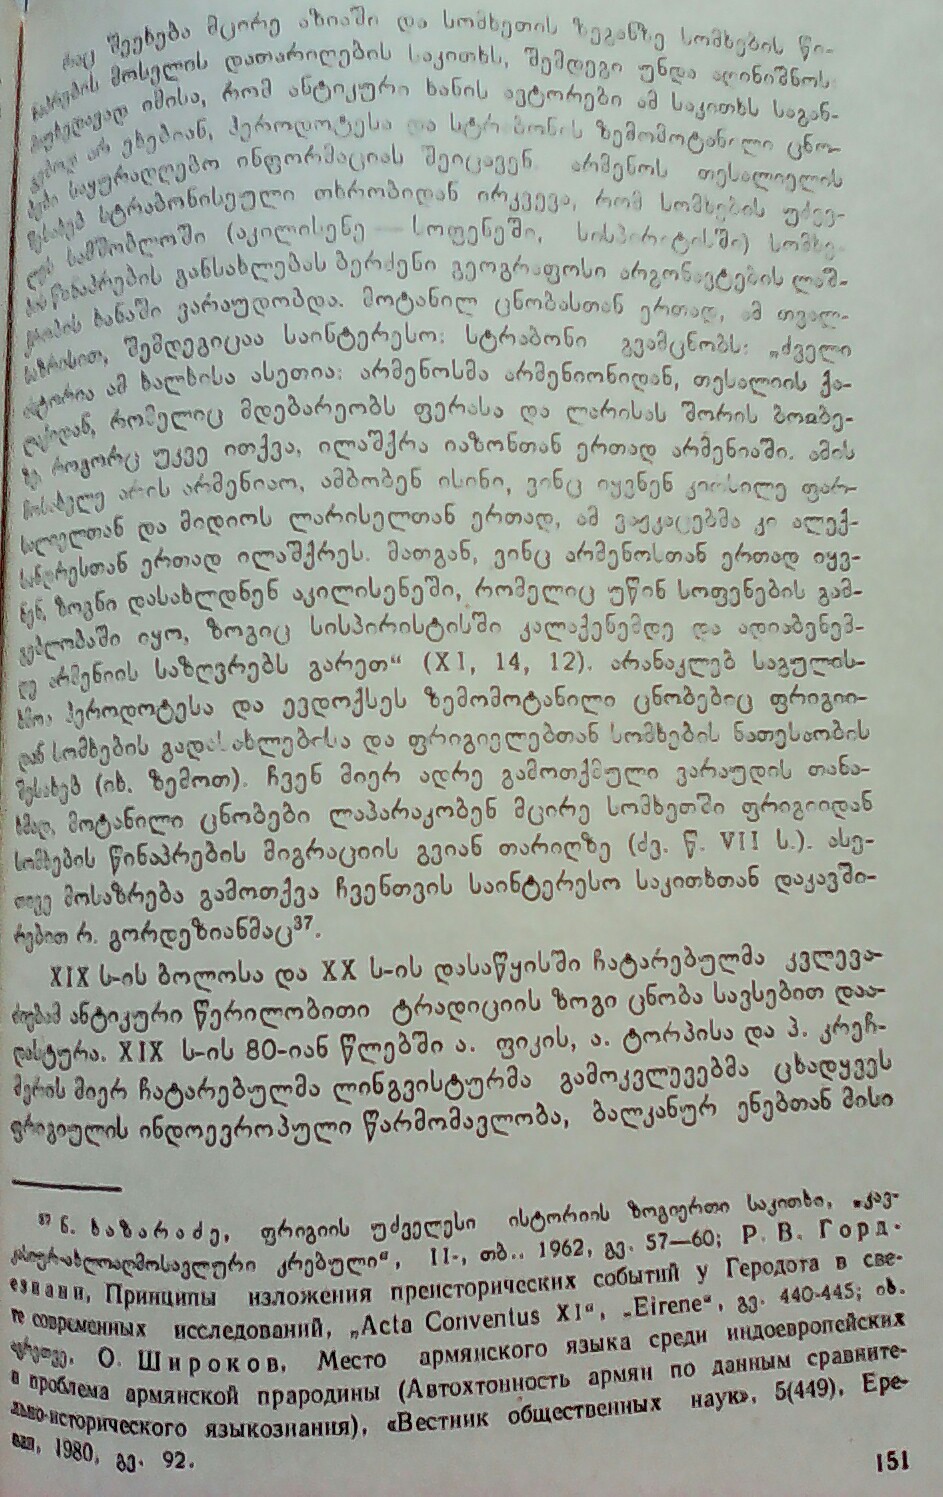 რაც შეეხება მცირე აზიაში და სომხეთის ზეგანზე სომხების წი-
ნაპრების მოსვლის დათარიღების საკითხს, შემდეგი უნდა აღინიშნოს.
მიუხედავად იმისა, რომ ანტიკური ხანის ავტორები ამ საკითხს საგან-
გებოდ არ ეხებიან, ჰეროდოტესა და სტრაბონის ზემომოტანილი ცნო-
ბები საყურადღებო ინფორმაციას შეიცავენ. არმენოს თესალიელის
შესახებ სტრაბონისეული თხრობიდან ირკვევა, რომ სომხების უძვე-
ლეს სამშობლოში (აკილისენე — სოფენეში, სისპირიტისში) სომხე-
ბის წინაპრების განსახლებას ბერძენი გეოგრაფოსი არგონავტების ლაშ-
ქრობის ხანაში ვარაუდობდა. მოტანილ ცნობასთან ერთად, ამ თვალ-
საზრისით, შემდეგიცაა საინტერესო: სტრაბონი გვამცნობს: „ძველი
ისტორია ამ ხალხისა ასეთია: არმენოსმა არმენიონიდან, თესალიის ქა-
ლაქიდან, რომელიც მდებარეობს ფერასა და ლარისას შორის ბოიბე-
ზე როგორც უკვე ითქვა, ილაშქრა იაზონთან ერთად არმენიაში. ამის
მოსახელე არის არმენიაო, ამბობენ ისინი, ვინც იყვნენ კირსილე ფარ-
სალიელთან და მიდიოს ლარისელთან ერთად, ამ ვაჟკაცებმა კი ალექ-
სანდრესთან ერთად ილაშქრეს. მათგან, ვინც არმენოსთან ერთად იყვ-
ნენ, ზოგნი დასახლდნენ აკილისენეში, რომელიც უწინ სოფენების გამ-
გებლობაში იყო, ზოგიც სისპირისტისში კალაქენემდე და ადიაბენემ-
დე არმენიის საზღვრებს გარეთ“ (XI, 14, 12). არანაკლებ საგულის-
ხმოა ჰეროდოტესა და ევდოქსეს ზემომოტანილი ცნობებიც ფრიგიი-
დან სომხების გადასახლებისა და ფრიგიელებთან სომხების ნათესაობის
შესახებ (იხ. ზემოთ). ჩვენ მიერ ადრე გამოთქმული ვარაუდის თანა-
ხმად, მოტანილი ცნობები ლაპარაკობენ მცირე სომხეთში ფრიგიიდან
სომხების წინაპრების მიგრაციის გვიან თარიღზე (ძვ. წ. VII ს.). ასე-
თივე მოსაზრება გამოთქვა ჩვენთვის საინტერესო საკითხთან დაკავში-
რებით რ. გორდეზიანმაც³⁷.
XIX ს-ის ბოლოსა და XX ს-ის დასაწყისში ჩატარებულმა კვლევა-
ძიებამ ანტიკური წერილობითი ტრადიციის ზოგი ცნობა სავსებით დაა-
დასტურა. XIX ს-ის 80-იან წლებში ა. ფიკის, ა. ტორპისა და პ. კრეჩ-
მერის მიერ ჩატარებულმა ლინგვისტურმა გამოკვლევებმა ცხადყვეს
ფრიგიულის ინდოევროპული წარმომავლობა, ბალკანურ ენებთან მისი
³⁷ ნ. ხაზარაძე, ფრიგიის უძველესი ისტორიის ზოგიერთი საკითხი, „კავ-
კასიურ-ახლოაღმოსავლური კრებული“, II-, თბ.. 1962, გვ. 57—60; Р. В. Горд-
езиани, Принципы изложения преисторических событий у Геродота в све-
те современных исследований, „Acta Conventus XI“, „Eirene“, გვ. 440-445; იხ.
აგრეთვე, О. Широков, Место армянского языка среди индоевропейских
и проблема армянской прародины (Автохтонность армян по данным сравните-
льно-исторического языкознания), «Вестник общественных наук», 5(449), Ере-
ван, 1980, გვ. 92.
151